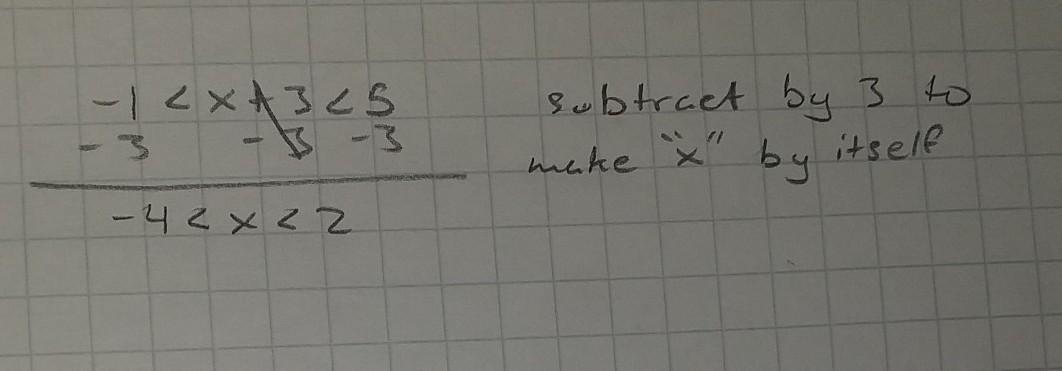 -1 < x + 3 < 5
-3 -3 -3
-4 < x < 2
subtract by 3 to
make "x" by itself